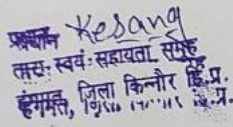 प्रधान Kesang
तारा स्वयं सहायता समूह
हंगमत, जिला किन्नौर हि.प्र.